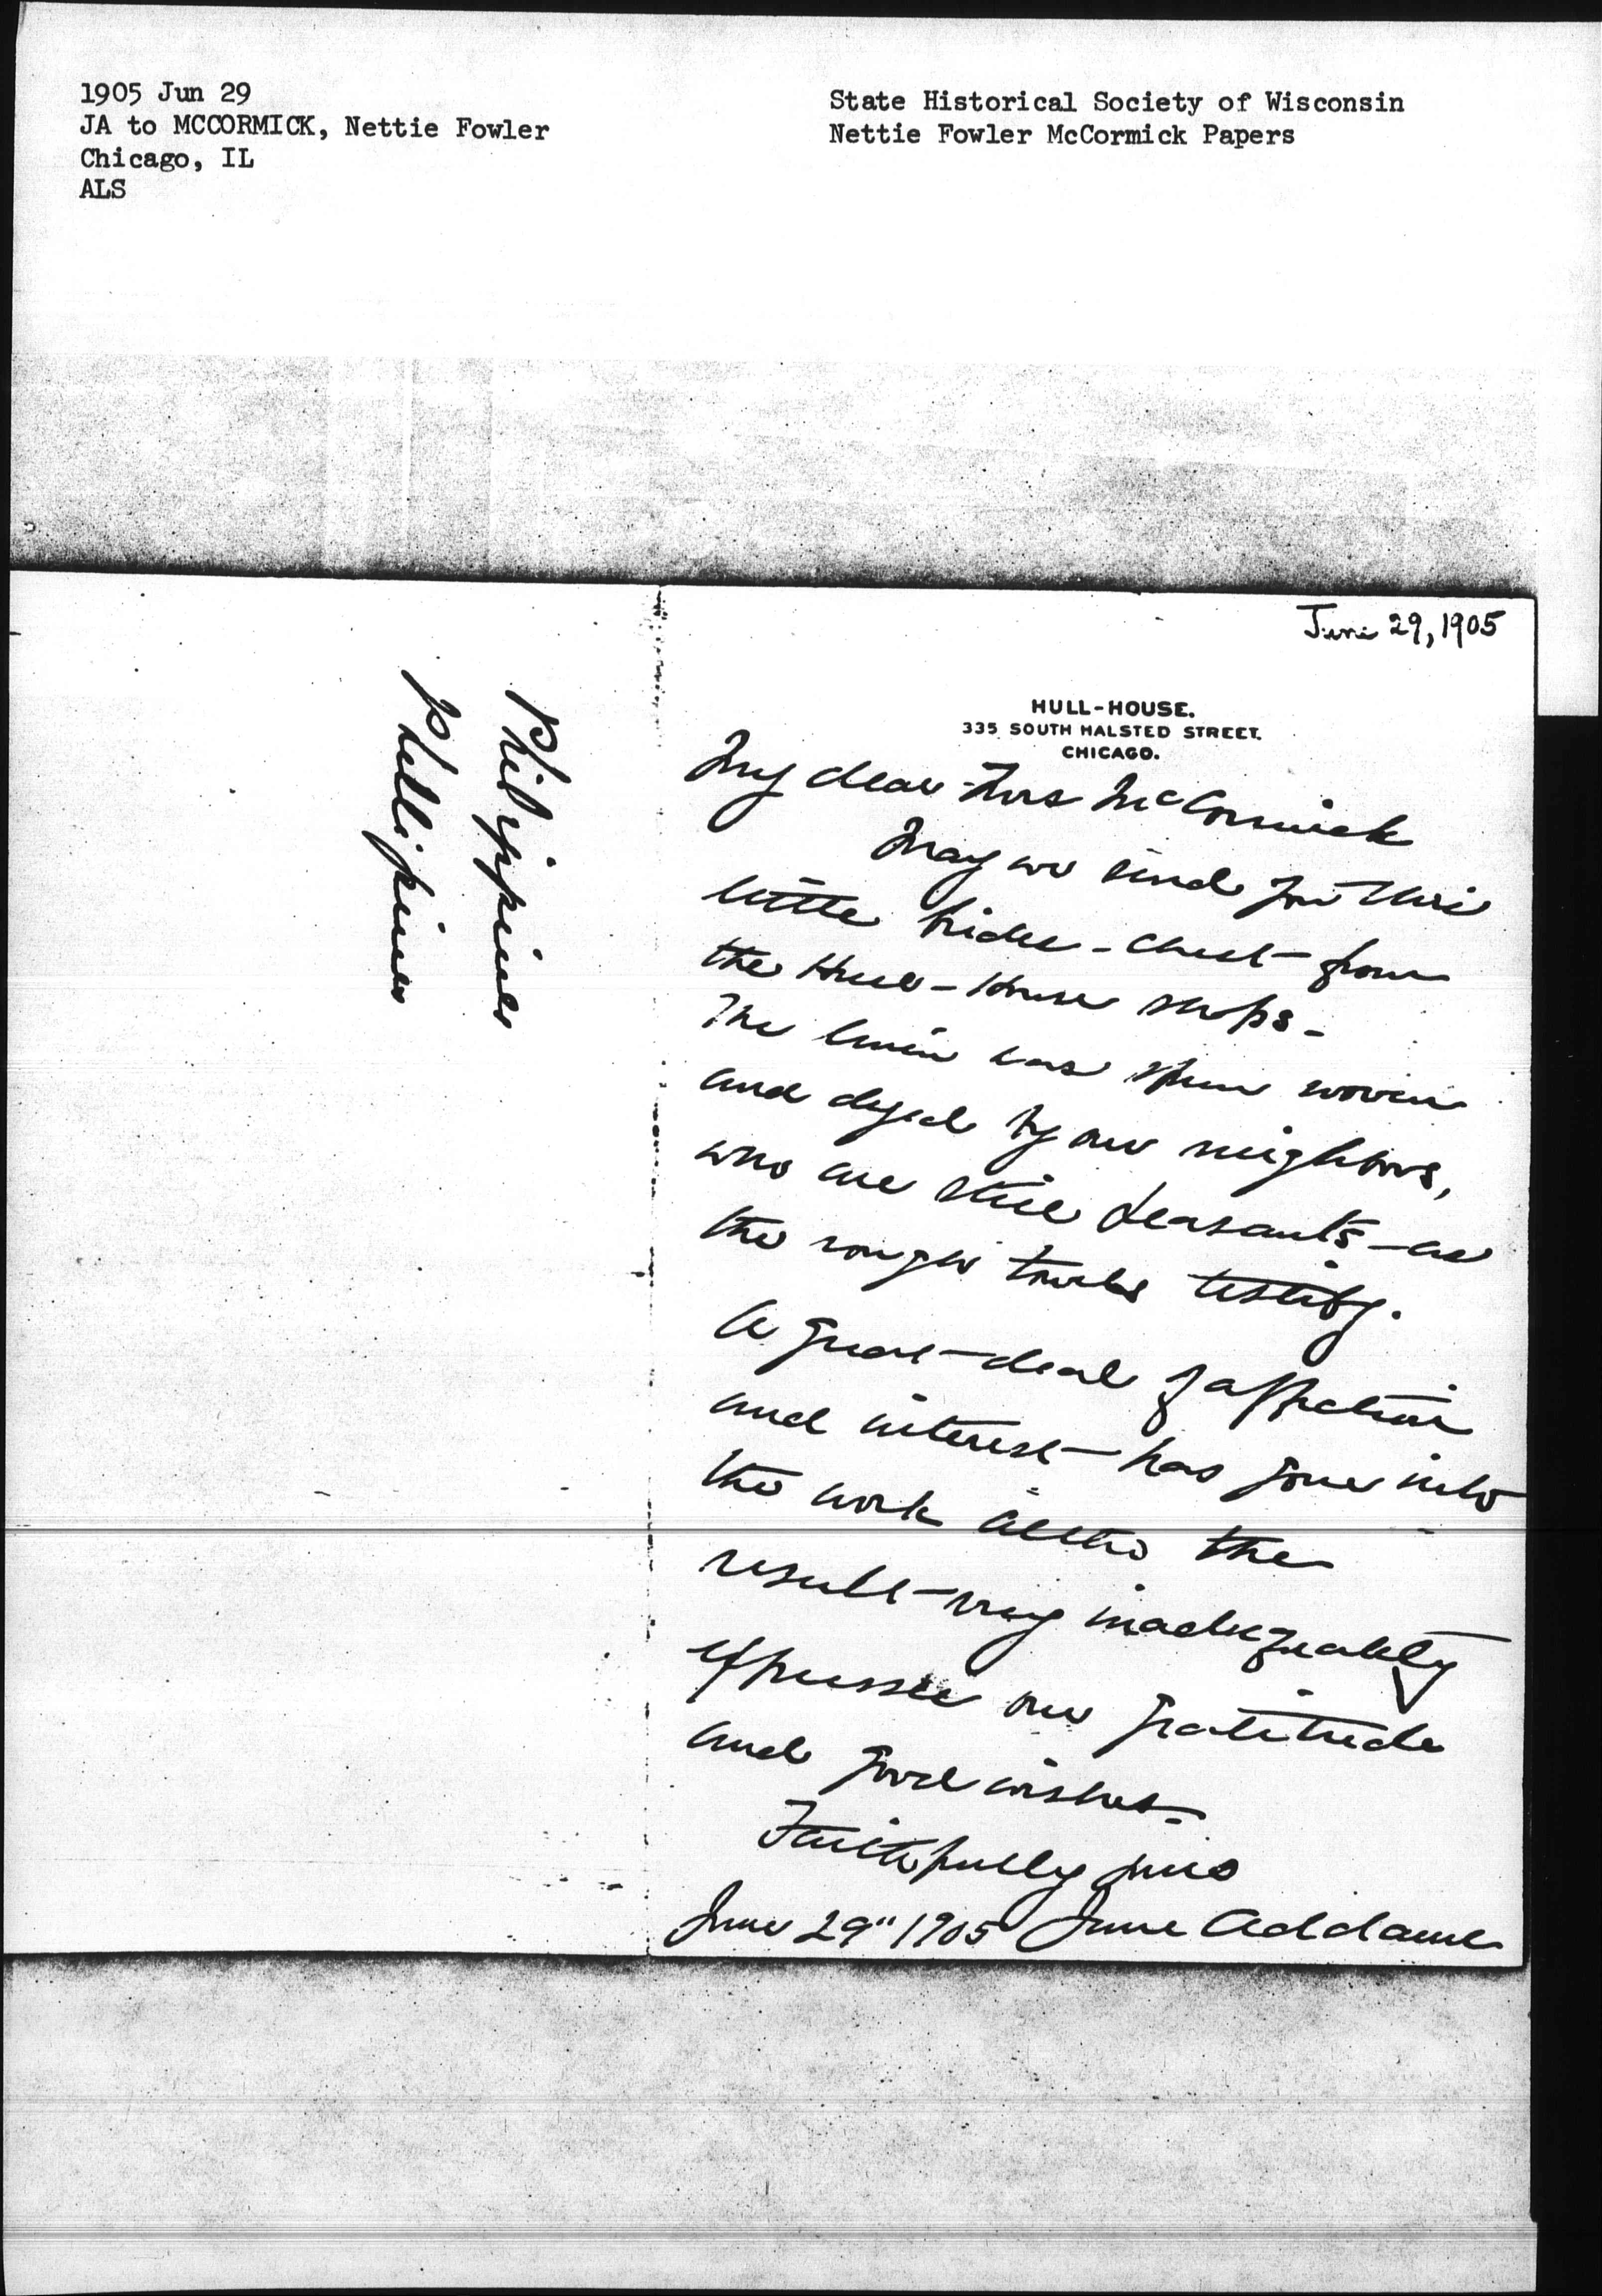 1905 Jun 29
JA to MCCORMICK, Nettie Fowler
Chicago, IL
ALS
State Historical Society of Wisconsin
Nettie Fowler McCormick Papers
Philippines
Phillipines
June 29, 1905
HULL-HOUSE.
335 SOUTH HALSTED STREET.
CHICAGO.
My dear Mrs McCormick
May we send you this
little bridal-chest from
the Hull-House shops-
The linen was spun woven
and dyed by our neighbors,
who are still peasants-as
the rough towels testify.
A great deal of affection
and interest has gone into
the work altho the
result very inadequately
expresses our gratitude
and good wishes-
Faithfully yours
June 29" 1905 Jane Addams